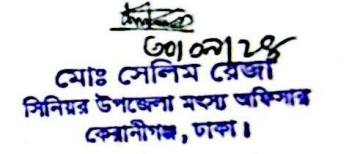 ৩০/০৭/২৪
মোঃ সেলিম রেজা
সিনিয়র উপজেলা মৎস্য অফিসার
কেরানীগঞ্জ, ঢাকা।